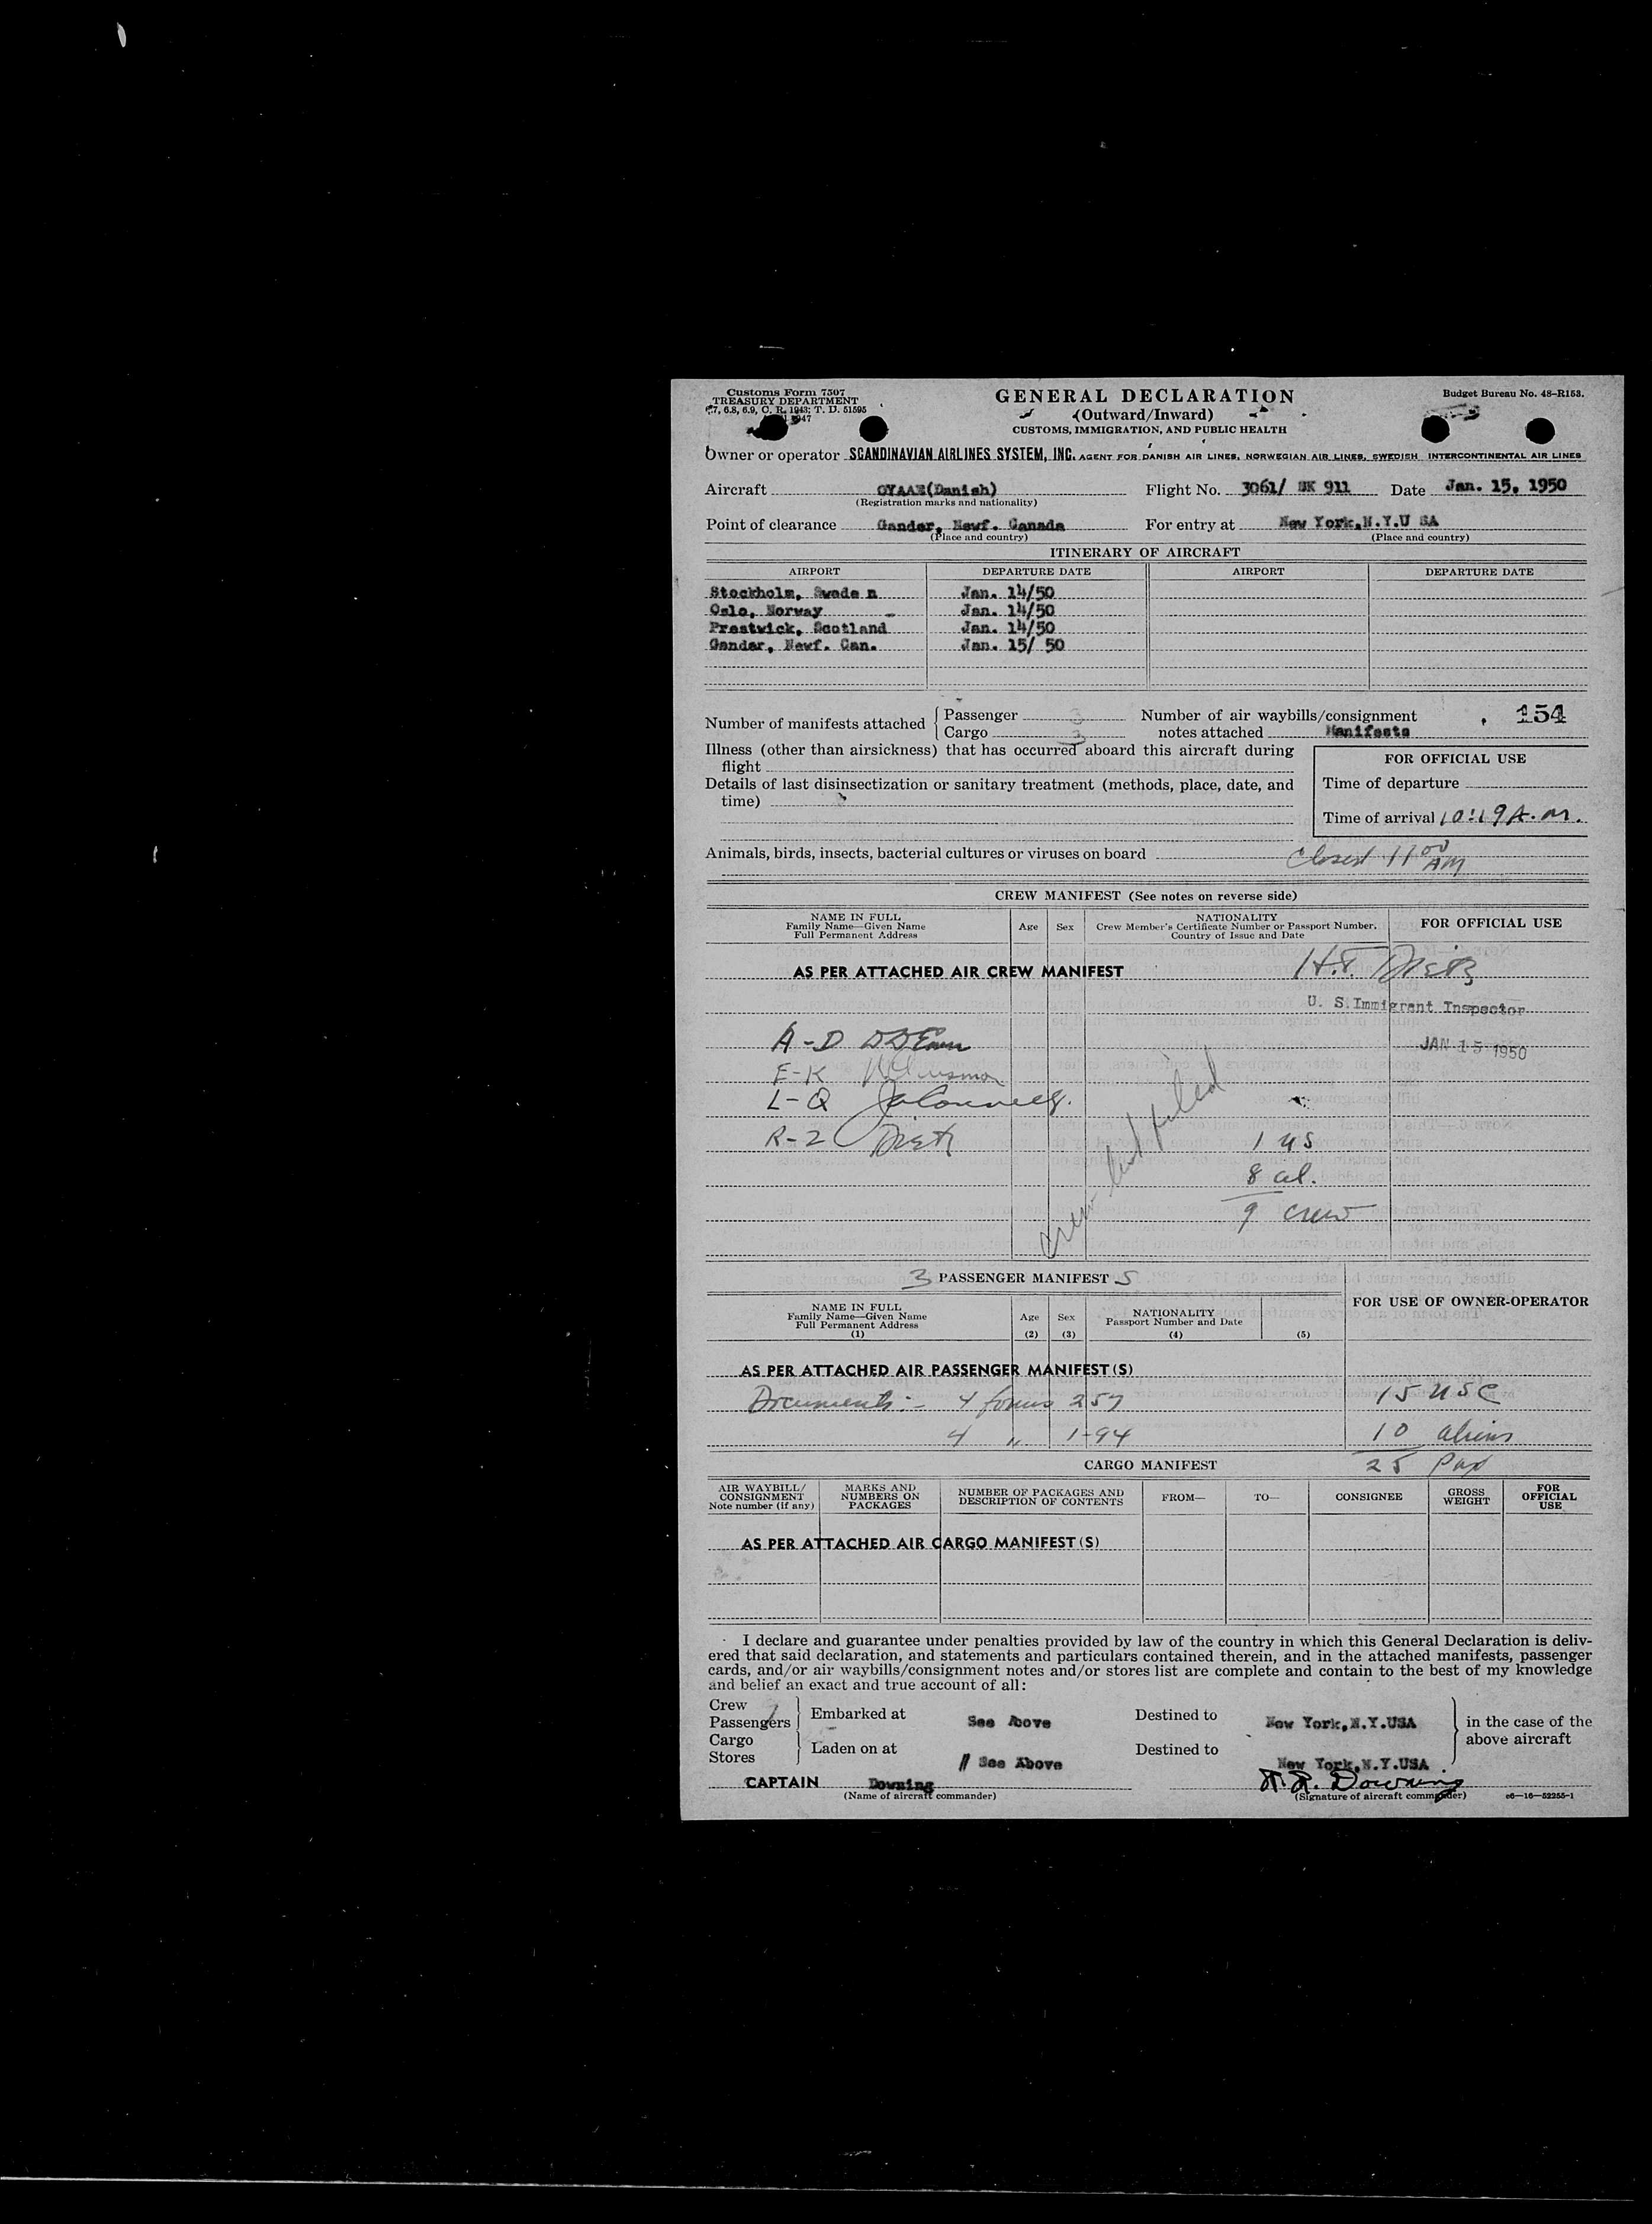 Customs Form 7507
TREASURY DEPARTMENT
6.7, 6.8, 6.9, C. R. 1943; T. D. 51595
1947
GENERAL DECLARATION
(Outward/Inward)
CUSTOMS, IMMIGRATION, AND PUBLIC HEALTH
Budget Bureau No. 48-R153.
Owner or operator SCANDINAVIAN AIRLINES SYSTEM, INC. AGENT FOR DANISH AIR LINES, NORWEGIAN AIR LINES, SWEDISH INTERCONTINENTAL AIR LINES
Aircraft OYAAE(Danish) Flight No. 3061/ SK 911 Date Jan. 15, 1950
(Registration marks and nationality)
Point of clearance Gander, Newf. Canada For entry at New York,N.Y.U SA
(Place and country) (Place and country)
ITINERARY OF AIRCRAFT
AIRPORT DEPARTURE DATE AIRPORT DEPARTURE DATE
Stockholm, Swede n Jan. 14/50
Oslo, Norway Jan. 14/50
Prestwick, Scotland Jan. 14/50
Gander, Newf. Can. Jan. 15/ 50
Number of manifests attached Passenger 3 Number of air waybills/consignment 154
Cargo 3 notes attached Manifests
Illness (other than airsickness) that has occurred aboard this aircraft during
flight
FOR OFFICIAL USE
Details of last disinsectization or sanitary treatment (methods, place, date, and
time)
Time of departure
Time of arrival 10:19 A.M.
Animals, birds, insects, bacterial cultures or viruses on board
Closed 11 00 AM
CREW MANIFEST (See notes on reverse side)
NAME IN FULL
Family Name—Given Name
Full Permanent Address
Age Sex
NATIONALITY
Crew Member's Certificate Number or Passport Number,
Country of Issue and Date
FOR OFFICIAL USE
AS PER ATTACHED AIR CREW MANIFEST
H.T. Dietz
U. S. Immigrant Inspector
JAN 15 1950
A-D
E-K
L-Q
R-Z Dietz
Crew list filed
1 US
8 al.
9 crew
3 PASSENGER MANIFEST S
NAME IN FULL
Family Name—Given Name
Full Permanent Address
(1)
Age
(2)
Sex
(3)
NATIONALITY
Passport Number and Date
(4) (5)
FOR USE OF OWNER-OPERATOR
AS PER ATTACHED AIR PASSENGER MANIFEST(S)
Documents:- 4 forms 257 15 USC
4 " I-94 10 aliens
25 Pax
CARGO MANIFEST
AIR WAYBILL/
CONSIGNMENT
Note number (if any)
MARKS AND
NUMBERS ON
PACKAGES
NUMBER OF PACKAGES AND
DESCRIPTION OF CONTENTS
FROM— TO— CONSIGNEE
GROSS
WEIGHT
FOR
OFFICIAL
USE
AS PER ATTACHED AIR CARGO MANIFEST(S)
I declare and guarantee under penalties provided by law of the country in which this General Declaration is deliv-
ered that said declaration, and statements and particulars contained therein, and in the attached manifests, passenger
cards, and/or air waybills/consignment notes and/or stores list are complete and contain to the best of my knowledge
and belief an exact and true account of all:
Crew
Passengers
Embarked at See Above Destined to New York,N.Y.USA
in the case of the
above aircraft
Cargo
Stores
Laden on at // See Above Destined to New York,N.Y.USA
CAPTAIN Downing R. R. Downing
(Name of aircraft commander) (Signature of aircraft commander) c6—16—52255-1